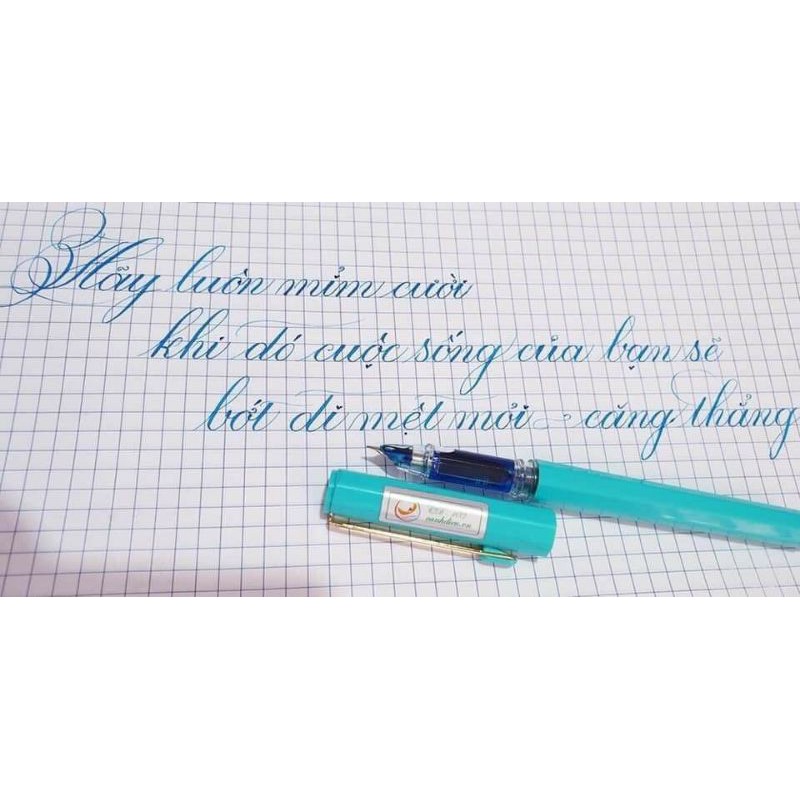 Hãy luôn mỉm cười
khi đó cuộc sống của bạn sẽ
bớt đi mệt mỏi - căng thẳng